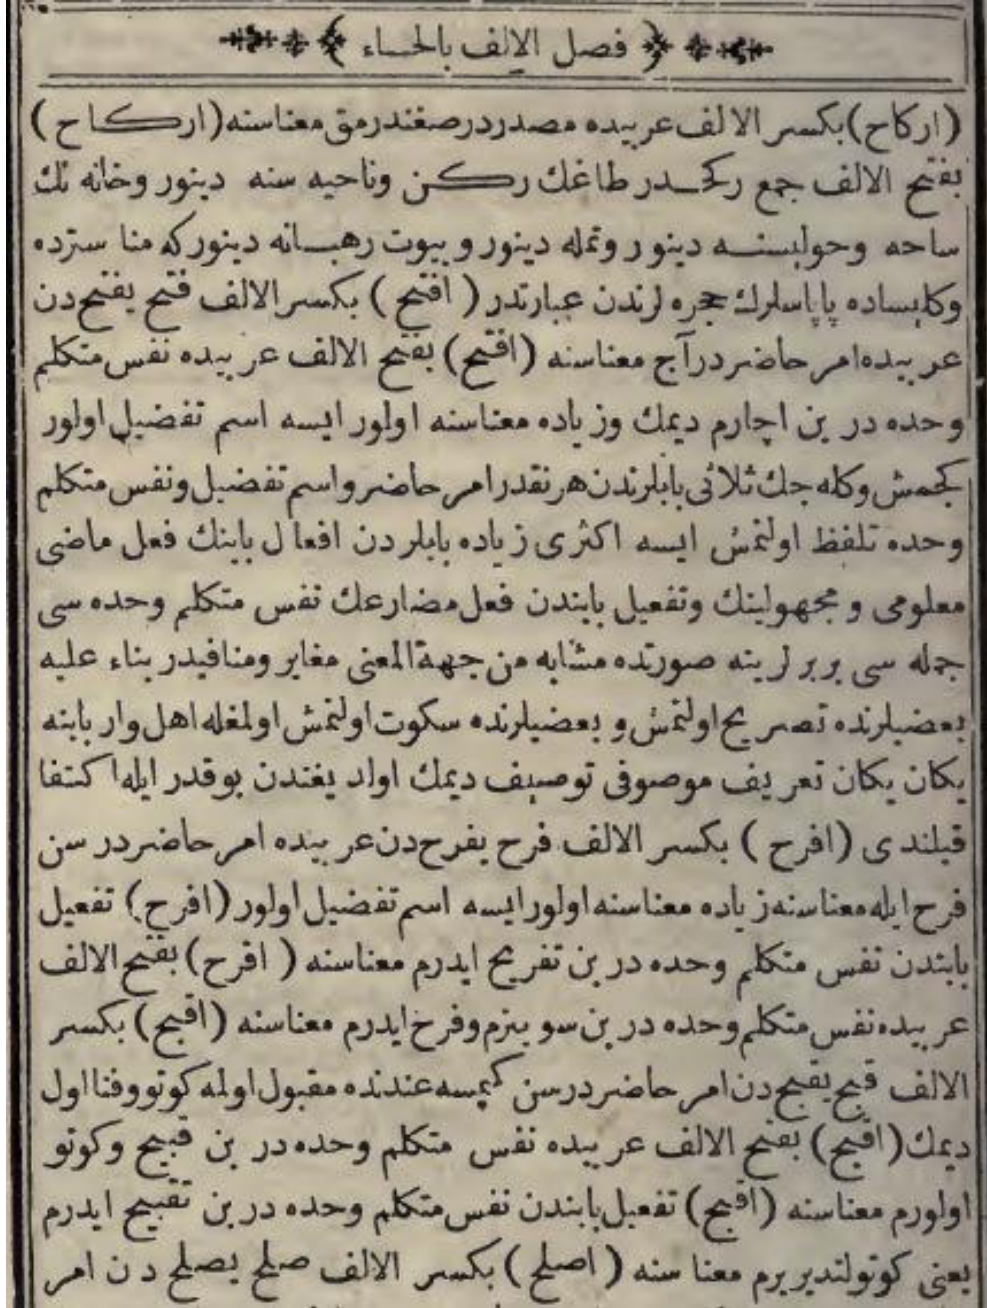 ﴿ فصل الالف بالحاء ﴾
(اركاح) بكسر الالف عربيده مصدردر صغندرمق معناسنه (اركاح)
بفتح الالف جمع ركحدر طاغك ركن وناحيه سنه دينور وخانه نك
ساحه وحوليسنه دينور وتمله دينور وبيوت رهبانه دينوركه مناسترده
وكليساده پاپاسلرك حجره لرندن عبارتدر (افتح) بكسر الالف فتح يفتح دن
عربيده امر حاضردر آج معناسنه (افتح) بفتح الالف عربيده نفس متكلم
وحده در بن اچارم ديمك وزياده معناسنه اولور ايسه اسم تفضيل اولور
كجمش وكله جك ثلاثی بابلرندن هر نقدر امر حاضر واسم تفضيل ونفس متكلم
وحده تلفظ اولنمش ايسه اكثری زياده بابلردن افعال بابنك فعل ماضی
معلومی و مجهولينك وتفعيل بابندن فعل مضارعك نفس متكلم وحده سی
جمله سی بربرلرينه صورتده مشابه من جهة المعنی مغاير ومنافيدر بناء عليه
بعضيلرنده تصريح اولنمش و بعضيلرنده سكوت اولنمش اولمغله اهل وار بابنه
يكان يكان تعريف موصوفی توصيف ديمك اولديغندن بوقدر ايله اكتفا
قيلندی (افرح) بكسر الالف فرح يفرح دن عربيده امر حاضردر سن
فرح ايله معناسنه زياده معناسنه اولور ايسه اسم تفضيل اولور (افرح) تفعيل
بابندن نفس متكلم وحده در بن تفريح ايدرم معناسنه (افرح) بفتح الالف
عربيده نفس متكلم وحده در بن سوينرم وفرح ايدرم معناسنه (اقبح) بكسر
الالف قبح يقبح دن امر حاضردر سن كيمسه عندنده مقبول اولمه كوتو وفنا اول
ديمك (اقبح) بفتح الالف عربيده نفس متكلم وحده در بن قبيح وكوتو
اولورم معناسنه (اقبح) تفعيل بابندن نفس متكلم وحده در بن تقبيح ايدرم
يعنی كوتولنديريرم معناسنه (اصلح) بكسر الالف صلح يصلح دن امر